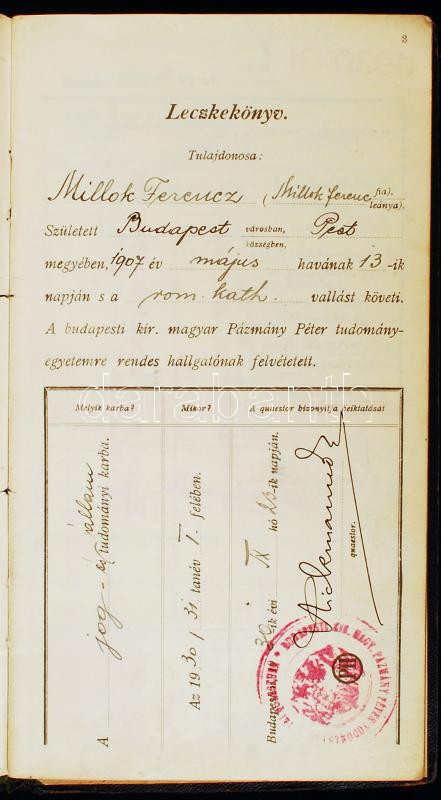 3
Leczkekönyv.
Tulajdonosa:
Millok Ferencz (Millok ferenc fia). leánya).
Született Budapest városban, községben, Pest
megyében, 1907 év május havának 13-ik
napján s a rom. kath. vallást követi.
A budapesti kir. magyar Pázmány Péter tudomány-
egyetemre rendes hallgatónak felvétetett.
darabanth
Melyik karba?
Mikor?
A quaestor bizonyitja beiktatását
A jog- és állam tudományi karba.
Az 1930/31 tanév I. felében.
Budapest, 1930 ik évi IX hó ik napján.
quaestor.
BUDAPESTI KIR. MAGY. PÁZMÁNY PÉTER